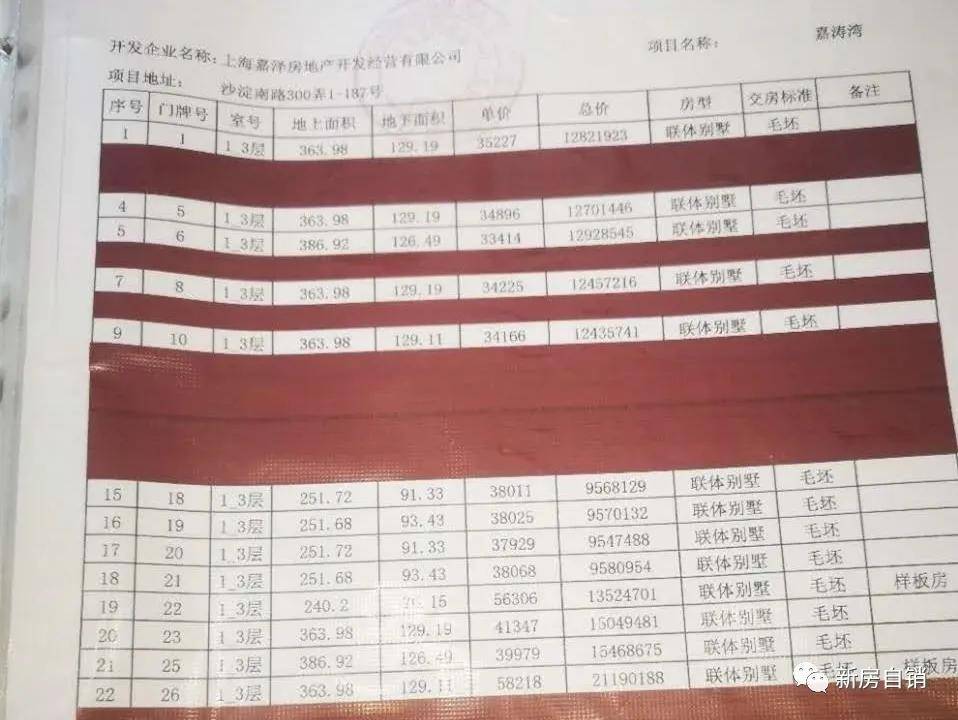 开发企业名称：上海嘉泽房地产开发经营有限公司 项目名称： 嘉涛湾
项目地址： 沙淀南路300弄1-187号
序号 门牌号 室号 地上面积 地下面积 单价 总价 房型 交房标准 备注
1 1 1_3层 363.98 129.19 35227 12821923 联体别墅 毛坯
4 5 1_3层 363.98 129.19 34896 12701446 联体别墅 毛坯
5 6 1_3层 386.92 126.49 33414 12928545 联体别墅 毛坯
7 8 1_3层 363.98 129.19 34225 12457216 联体别墅 毛坯
9 10 1_3层 363.98 129.11 34166 12435741 联体别墅 毛坯
15 18 1_3层 251.72 91.33 38011 9568129 联体别墅 毛坯
16 19 1_3层 251.68 93.43 38025 9570132 联体别墅 毛坯
17 20 1_3层 251.72 91.33 37929 9547488 联体别墅 毛坯
18 21 1_3层 251.68 93.43 38068 9580954 联体别墅 毛坯
19 22 1_3层 240.2 56306 13524701 联体别墅 毛坯 样板房
20 23 1_3层 363.98 129.19 41347 15049481 联体别墅 毛坯
21 25 1_3层 386.92 126.49 39979 15468675 联体别墅 毛坯
22 26 1_3层 363.98 129.11 58218 21190188 联体别墅 毛坯 样板房
新房自销